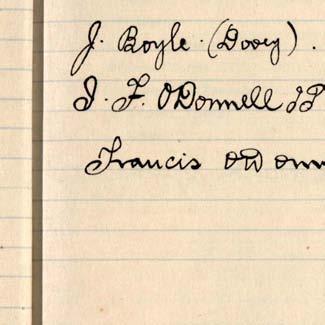 J. Boyle. (Dooey).
I. F. ODonnell JP
Francis